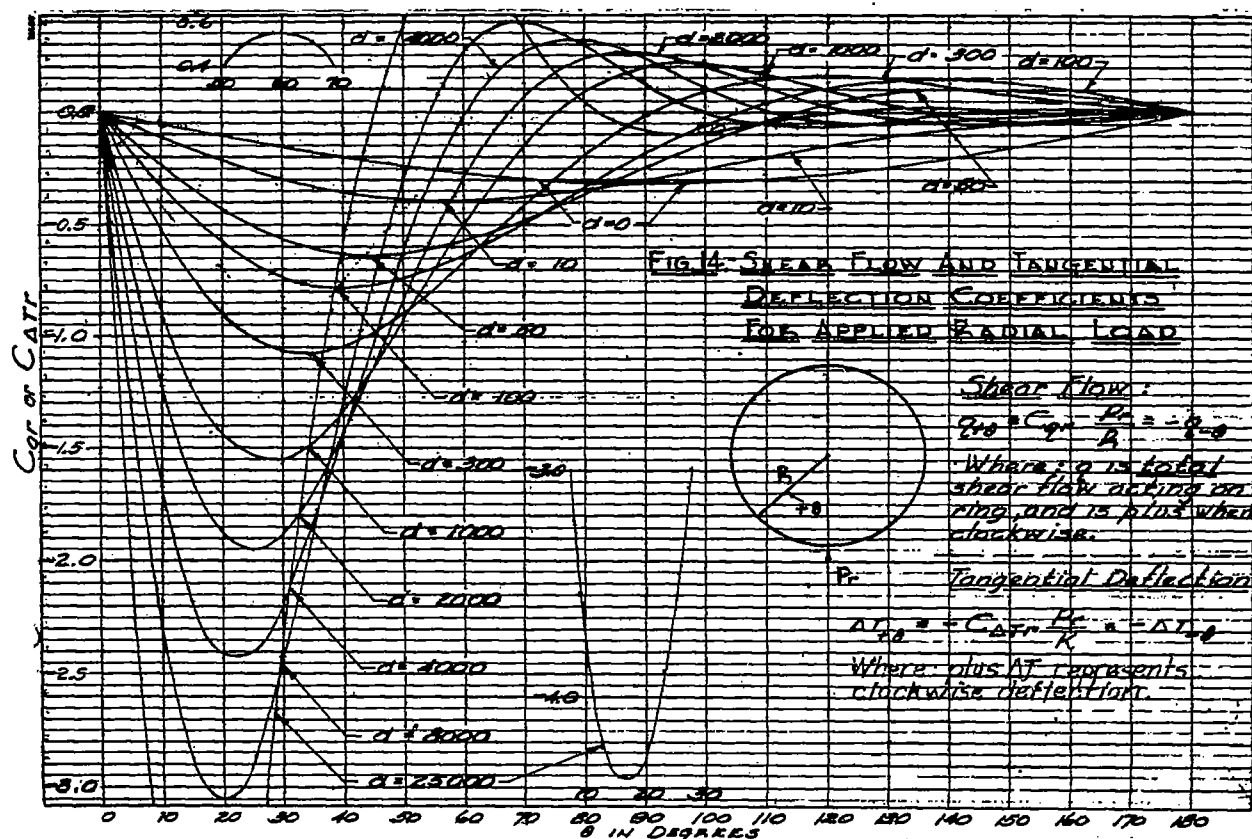 0.4
50 60 70
d = 4000
d = 8000
d = 1000
d = 300
d = 100
0.0
d = 10
d = 0
-0.5
d = 10
FIG. 14- SHEAR FLOW AND TANGENTIAL
DEFLECTION COEFFICIENTS
FOR APPLIED RADIAL LOAD
-1.0
d = 100
Cqr or CΔTr
Shear Flow:
q+θ = Cqr Pr/R = -q-θ
Where: q is total
shear flow acting on
ring, and is plus when
clockwise.
R
+θ
Pr
-1.5
d = 300
-3.0
d = 1000
-2.0
d = 2000
Tangential Deflection
ΔT+θ = -CΔTr Pr/K = -ΔT-θ
Where: plus ΔT represents
clockwise deflection.
d = 4000
-2.5
-4.0
d = 8000
d = 25000
-3.0
10 20 30
0 10 20 30 40 50 60 70 80 90 100 110 120 130 140 150 160 170 180
θ IN DEGREES